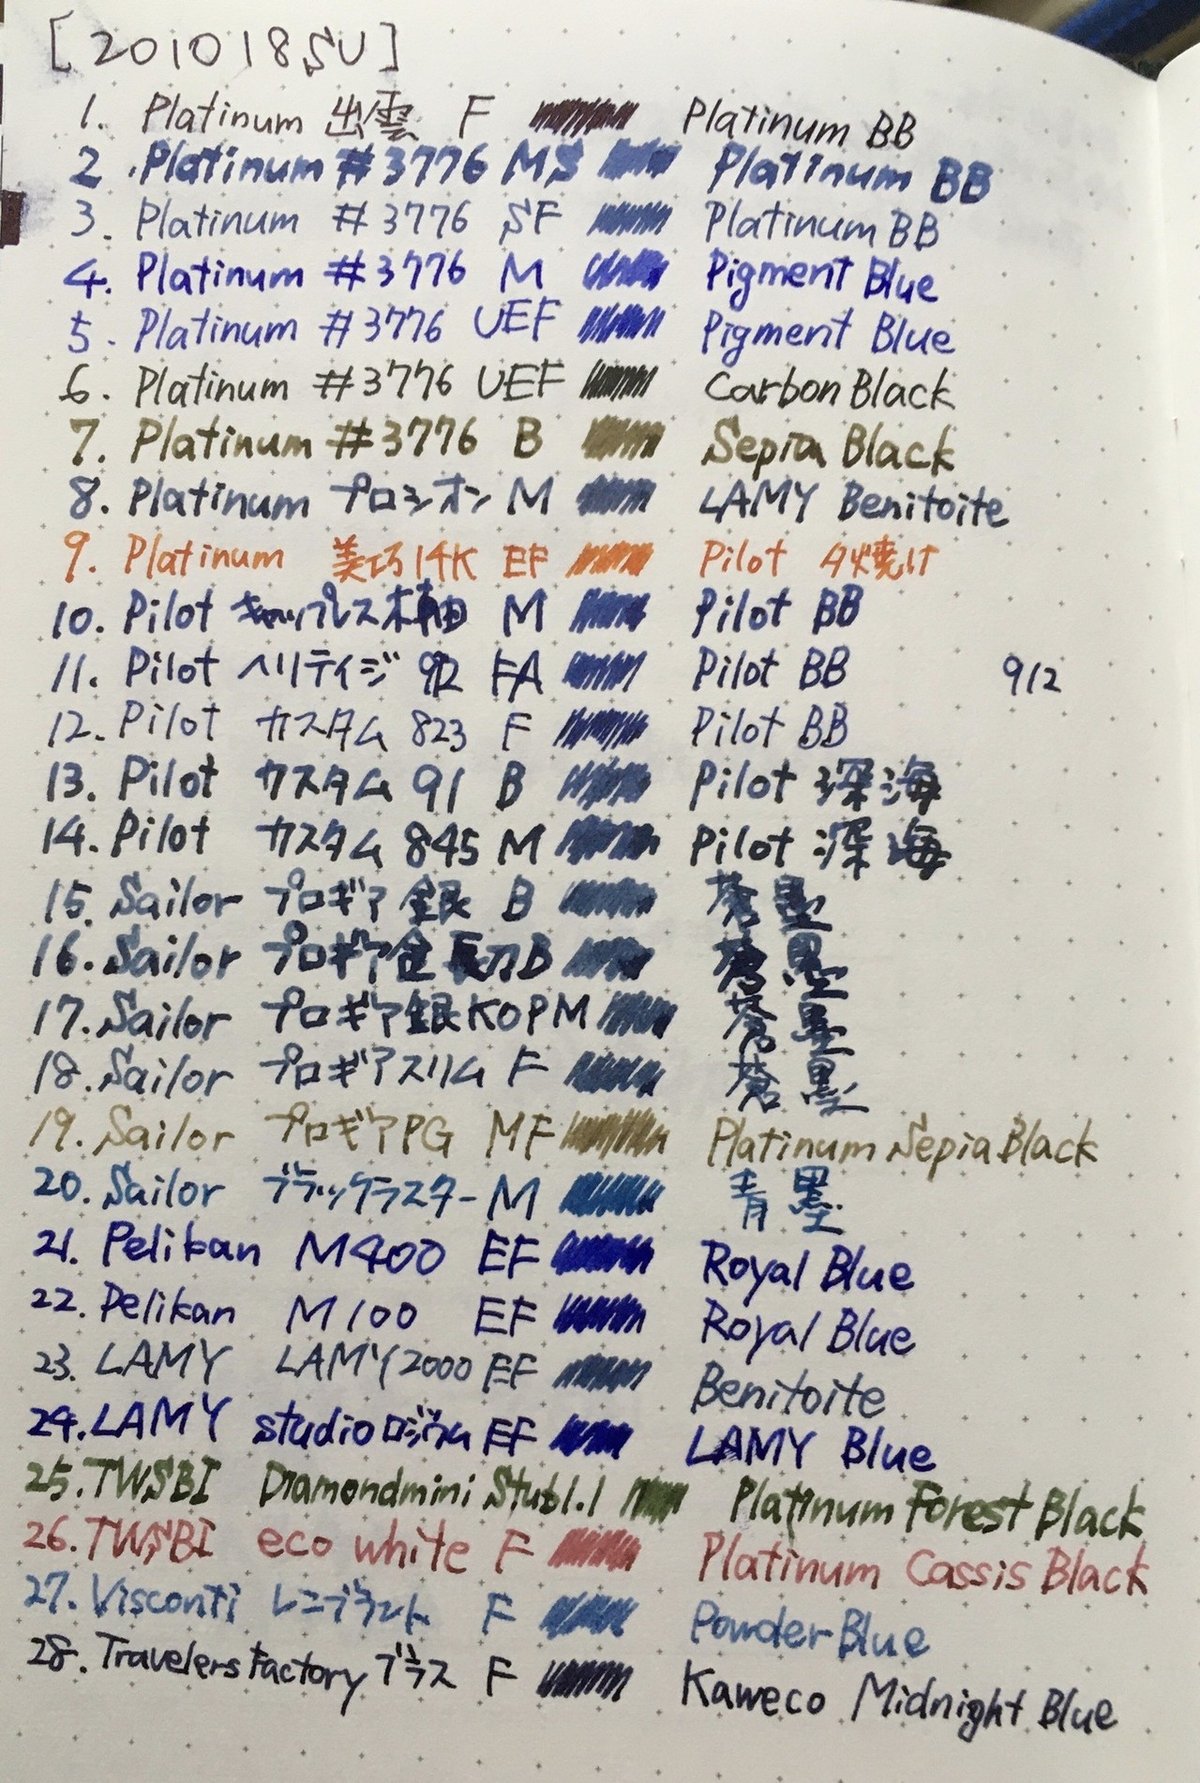 [201018SU]
1. Platinum 出雲 F Platinum BB
2. Platinum #3776 MS Platinum BB
3. Platinum #3776 SF Platinum BB
4. Platinum #3776 M Pigment Blue
5. Platinum #3776 UEF Pigment Blue
6. Platinum #3776 UEF Carbon Black
7. Platinum #3776 B Sepia Black
8. Platinum プロシオン M LAMY Benitoite
9. Platinum 美巧14K EF Pilot 夕焼け
10. Pilot キャップレス木軸 M Pilot BB
11. Pilot ヘリテイジ 912 FA Pilot BB 912
12. Pilot カスタム 823 F Pilot BB
13. Pilot カスタム 91 B Pilot 深海
14. Pilot カスタム 845 M Pilot 深海
15. Sailor プロギア 銀 B 蒼墨
16. Sailor プロギア金 長刀B 蒼墨
17. Sailor プロギア銀KOP M 蒼墨
18. Sailor プロギアスリム F 蒼墨
19. Sailor プロギアPG MF Platinum Sepia Black
20. Sailor ブラックラスター M 青墨
21. Pelikan M400 EF Royal Blue
22. Pelikan M100 EF Royal Blue
23. LAMY LAMY2000 EF Benitoite
24. LAMY studioロジウム EF LAMY Blue
25. TWSBI Diamondmini Stub1.1 Platinum Forest Black
26. TWSBI eco white F Platinum Cassis Black
27. Visconti レンブラント F Powder Blue
28. Travelers Factory ブラス F Kaweco Midnight Blue